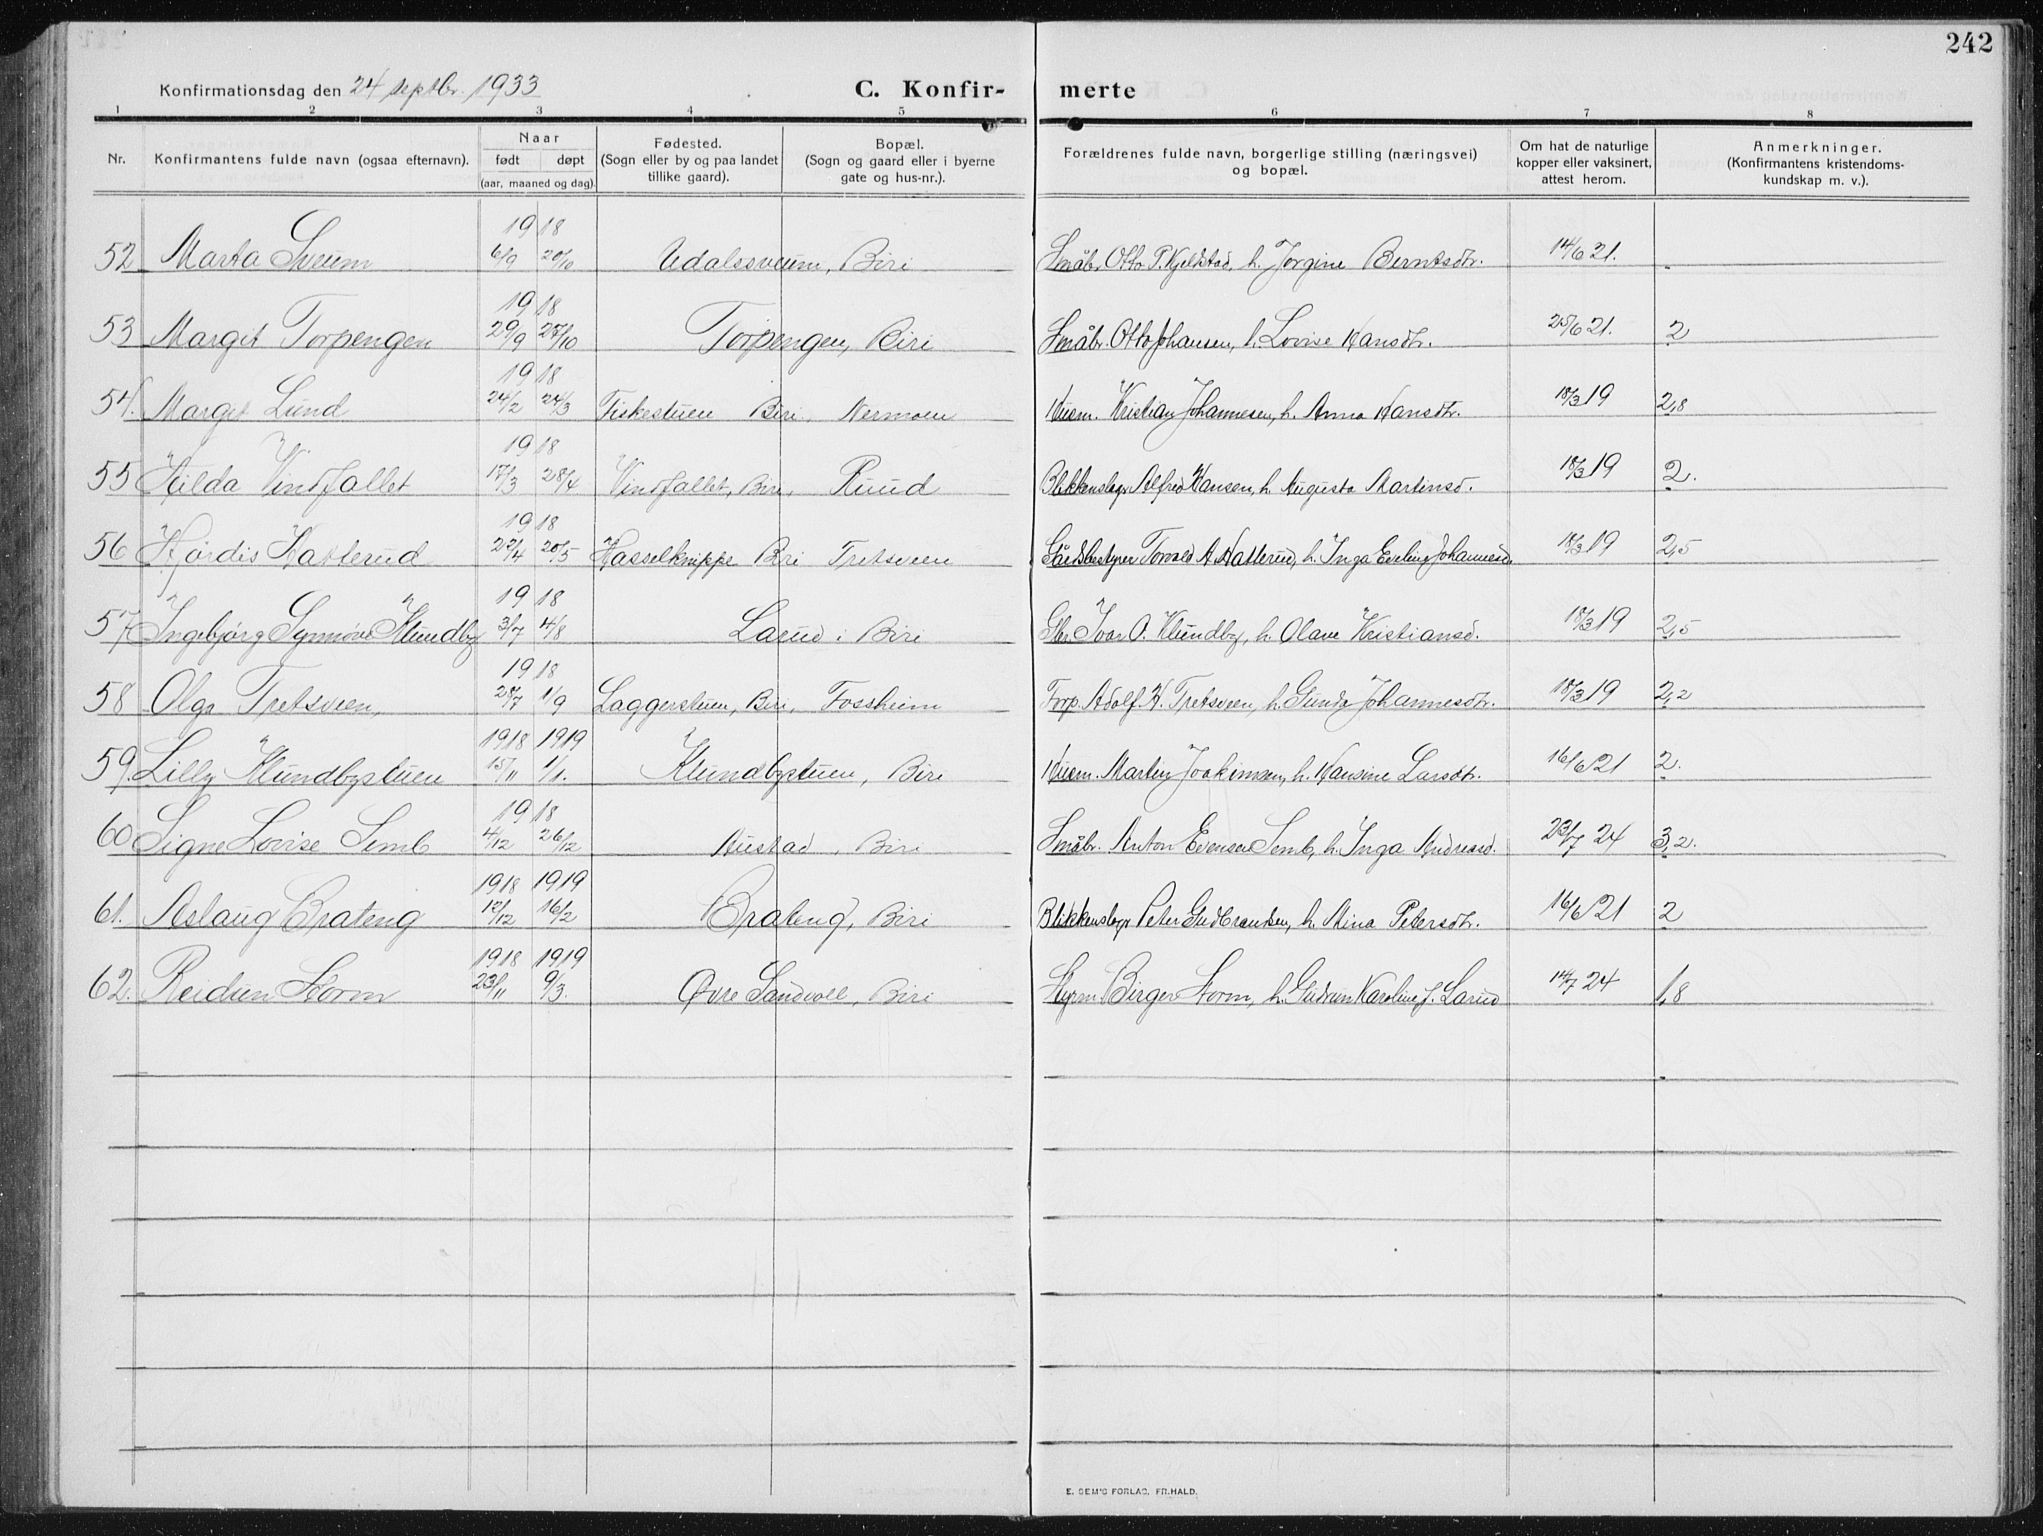 242
Konfirmationsdag den 24 septbr. 1933 C. Konfir- merte
1 2 3 4 5 6 7 8
Nr. Konfirmantens fulde navn (ogsaa efternavn). Naar født døpt (aar, maaned og dag). Fødested. (Sogn eller by og paa landet tillike gaard). Bopæl. (Sogn og gaard eller i byerne gate og hus-nr.). Forældrenes fulde navn, borgerlige stilling (næringsvei) og bopæl. Om hat de naturlige kopper eller vaksinert, attest herom. Anmerkninger. (Konfirmantens kristendoms- kundskap m. v.).
19 18
52 Marta Sveum 6/9 20/10 Udalssveum, Biri Småbr. Otto P. Kjeldstad, h. Jørgine Berntsdtr. 14/6 21.
19 18
53 Margit Torpengen 29/9 27/10 Torpengen, Biri Småbr. Otto Johansen, h. Lovise Hansdtr. 25/6 21. 2
19 18
54. Margit Lund 24/2 24/3 Fiskestuen Biri, Nermoen Husm. Kristian Johannesen, h. Anna Hansdtr. 18/3 19 2,8
19 18
55 Hilda Vindfallet 17/3 28/4 Vindfallet, Biri, Ruud Blikkenslager Alfred Hansen, h. Augusta Martinsd. 18/3 19 2.
19 18
56 Hjørdis Hatterud 22/4 20/5 Hasselknippe Biri Tretsveen Gårdsbestyrer Torvald A. Hatterud, h. Inga Eveline Johannesd. 18/3 19 2,5
19 18
57 Ingebjørg Synnøve Klundby 3/7 4/8 Larud i Biri Gbr. Ivar O. Klundby, h. Olave Kristiansd. 18/3 19 2,5
19 18
58 Olga Tretsveen, 28/7 1/9 Laggerstuen, Biri, Fossheim Forp. Adolf H. Tretsveen, h. Gunda Johannesdtr. 18/3 19 2,2
1918 1919
59. Lilly Klundbystuen 15/11 1/1. Klundbystuen, Biri Husm. Martin Joakimsen, h. Hansine Larsdtr. 16/6 21 2.
19 18
60 Signe Lovise Semb 4/12 26/12 Austad, Biri Småbr. Anton Evensen Semb, h. Inga Andreasd. 23/7 24 3,2.
1918 1919
61. Aslaug Brateng 12/12 16/2 Brateng, Biri Blikkenslager Peter Gudbrandsen, h. Mina Petersdtr. 16/6 21 2
1918 1919
62. Reidun Storm 23/11 9/3. Øvre Sandvoll, Biri Styrm. Birger Storm, h. Gudrun Karoline J. Larud 14/7 24 1,8
E. SEM'S FORLAG, FR.HALD.